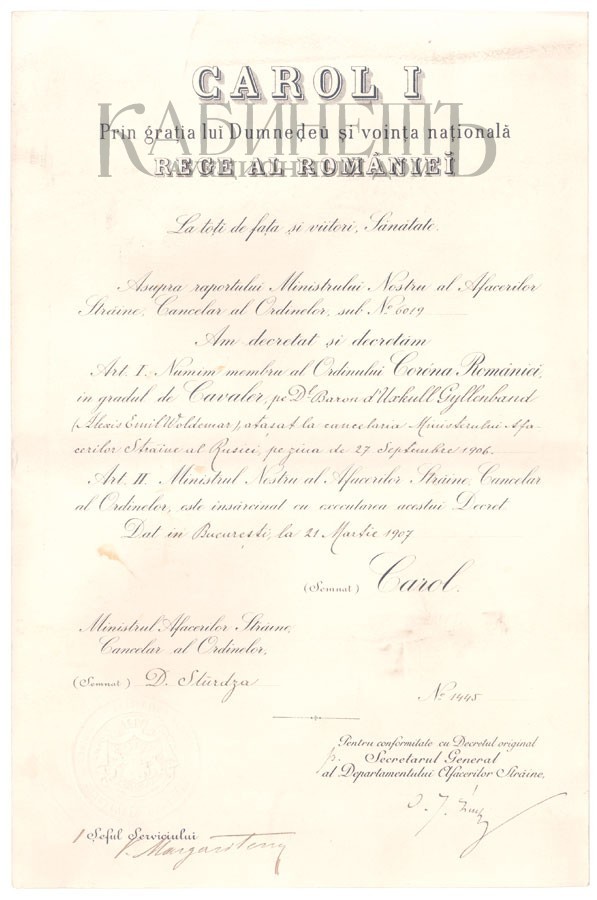 CAROL I
КАБИНЕТЪ
Prin grația lui Dumneḑeŭ și voința națională
REGE AL ROMÂNIEĬ
La toți de față și viitori, Sănătate.
Asupra raportului Ministrului Nostru al Afacerilor
Străine, Cancelar al Ordinelor, sub No 6019
Am decretat și decretăm
Art. I. Numim membru al Ordinului Coróna României,
in gradul de Cavaler, pe Dl Baron d'Uxkull Gyllenband
(Alexis Emil Woldemar), atașat la cancelaria Ministerului Afa-
cerilor Străine al Rusiei, pe ziua de 27 Septembre 1906.
Art. II. Ministrul Nostru al Afacerilor Străine, Cancelar
al Ordinelor, este însărcinat cu executarea acestui Decret
Dat in București, la 21 Martie 1907
(Semnat) Carol.
Ministrul Afacerilor Străine,
Cancelar al Ordinelor,
(Semnat) D. Sturdza
No 1445
Pentru conformitate cu Decretul original
p. Secretarul General
al Departamentului Afacerilor Străine,
Șeful Serviciului